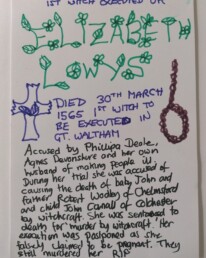 1ST WITCH EXECUTED UK
ELIZABETH
LOWYS
DIED 30TH MARCH
1565 1ST WITCH TO
BE EXECUTED IN
GT. WALTHAM
Accused by Phillipa Deale,
Agnes Devonshire and her own
husband of making people ill.
During her trial she was accused of
causing the death of baby John and
father Robert Wodley of Chelmsford
and child John Canall of Colchester
by witchcraft. She was sentenced to
death for 'murder by witchcraft' Her
execution was postponed as she
falsely claimed to be pregnant. They
still murdered her R.I.P